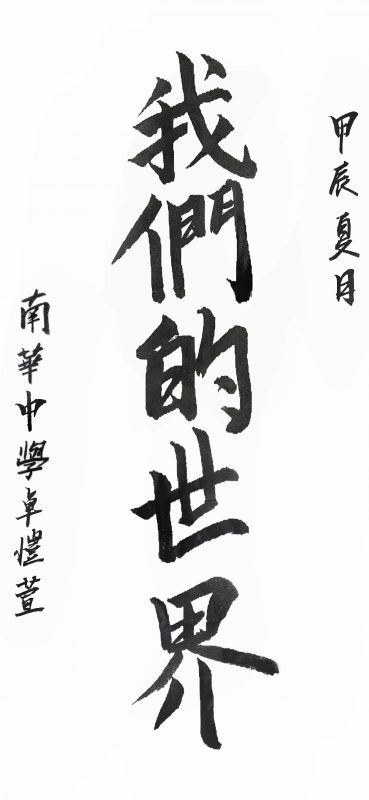 甲辰夏月
我們的世界
南華中學卓愷萱